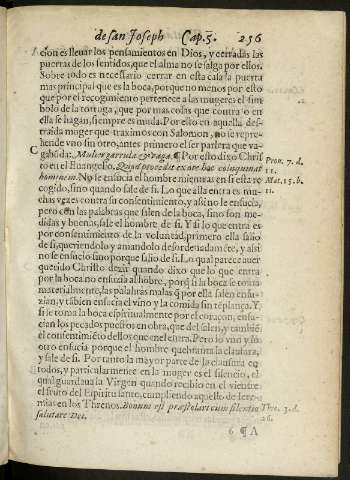 de san Joseph Cap. 5. 256
cion es lleuar los pensamientos en Dios, y cerradas las
puertas de los sentidos, que el alma no se salga por ellos.
Sobre todo es necessario cerrar en esta casa la puerta
mas principal que es la boca, porque no menos por esto
que por el recogimiento pertenece a las mugeres el sim
bolo de la tortuga, que por mas cosas que contra o en
ella se hagan, siempre es muda. Por esto en aquella des-
traida muger que traximos con Salomon, no se repre-
hende vno sin otro, antes primero el ser parlera que va-
gabūda: Mulier garrula & vaga. ¶ Por esto dixo Chris
to en el Euangelio. Quod procedit ex ore hoc coinquinat
hominem. No se ensucia el hombre mientras en si esta re
cogido, sino quando sale de si. Lo que alla entra es mu-
chas vezes contra su consentimiento, y assi no le ensucia,
pero con las palabras que salen de la boca, sino son me-
didas y buenas, sale el hombre de si. Y si lo que entra es
por consentimiento de la voluntad, primero ella salio
de si, queriendolo y amandolo desordenadamēte, y assi
no se ensuciò sino porque salio de si. Lo qual parece auer
querido Christo dezir quando dixo que lo que entra
por la boca no ensuzia al hōbre, porq̄ si la boca se toma
materialmente, las palabras malas q̄ por ella salen ensu-
zian, y tābien ensucia el vino y la comida sin tēplança. Y
si se toma la boca espiritualmente por el coraçon, ensu-
cian los pecados puestos en obra, que del salen, y tambiē
el consentimiēto dellos que en el entra. Pero lo vno y lo
otro ensucia porque el hombre quebranta la clausura,
y sale de si. Por tanto la mayor parte de la clausura en
todos, y particularmente en la muger es el silencio, el
qual guardaua la Virgen quando recibio en el vientre
el fruto del Espiritu santo, cumpliendo aquello de Iere-
mias en los Threnos. Bonum est præstolari cum silentio
salutare Dei.
C
Prou. 7. d.
11.
Mat. 15. b.
11.
Thre. 3. d.
26.
6 ¶ A